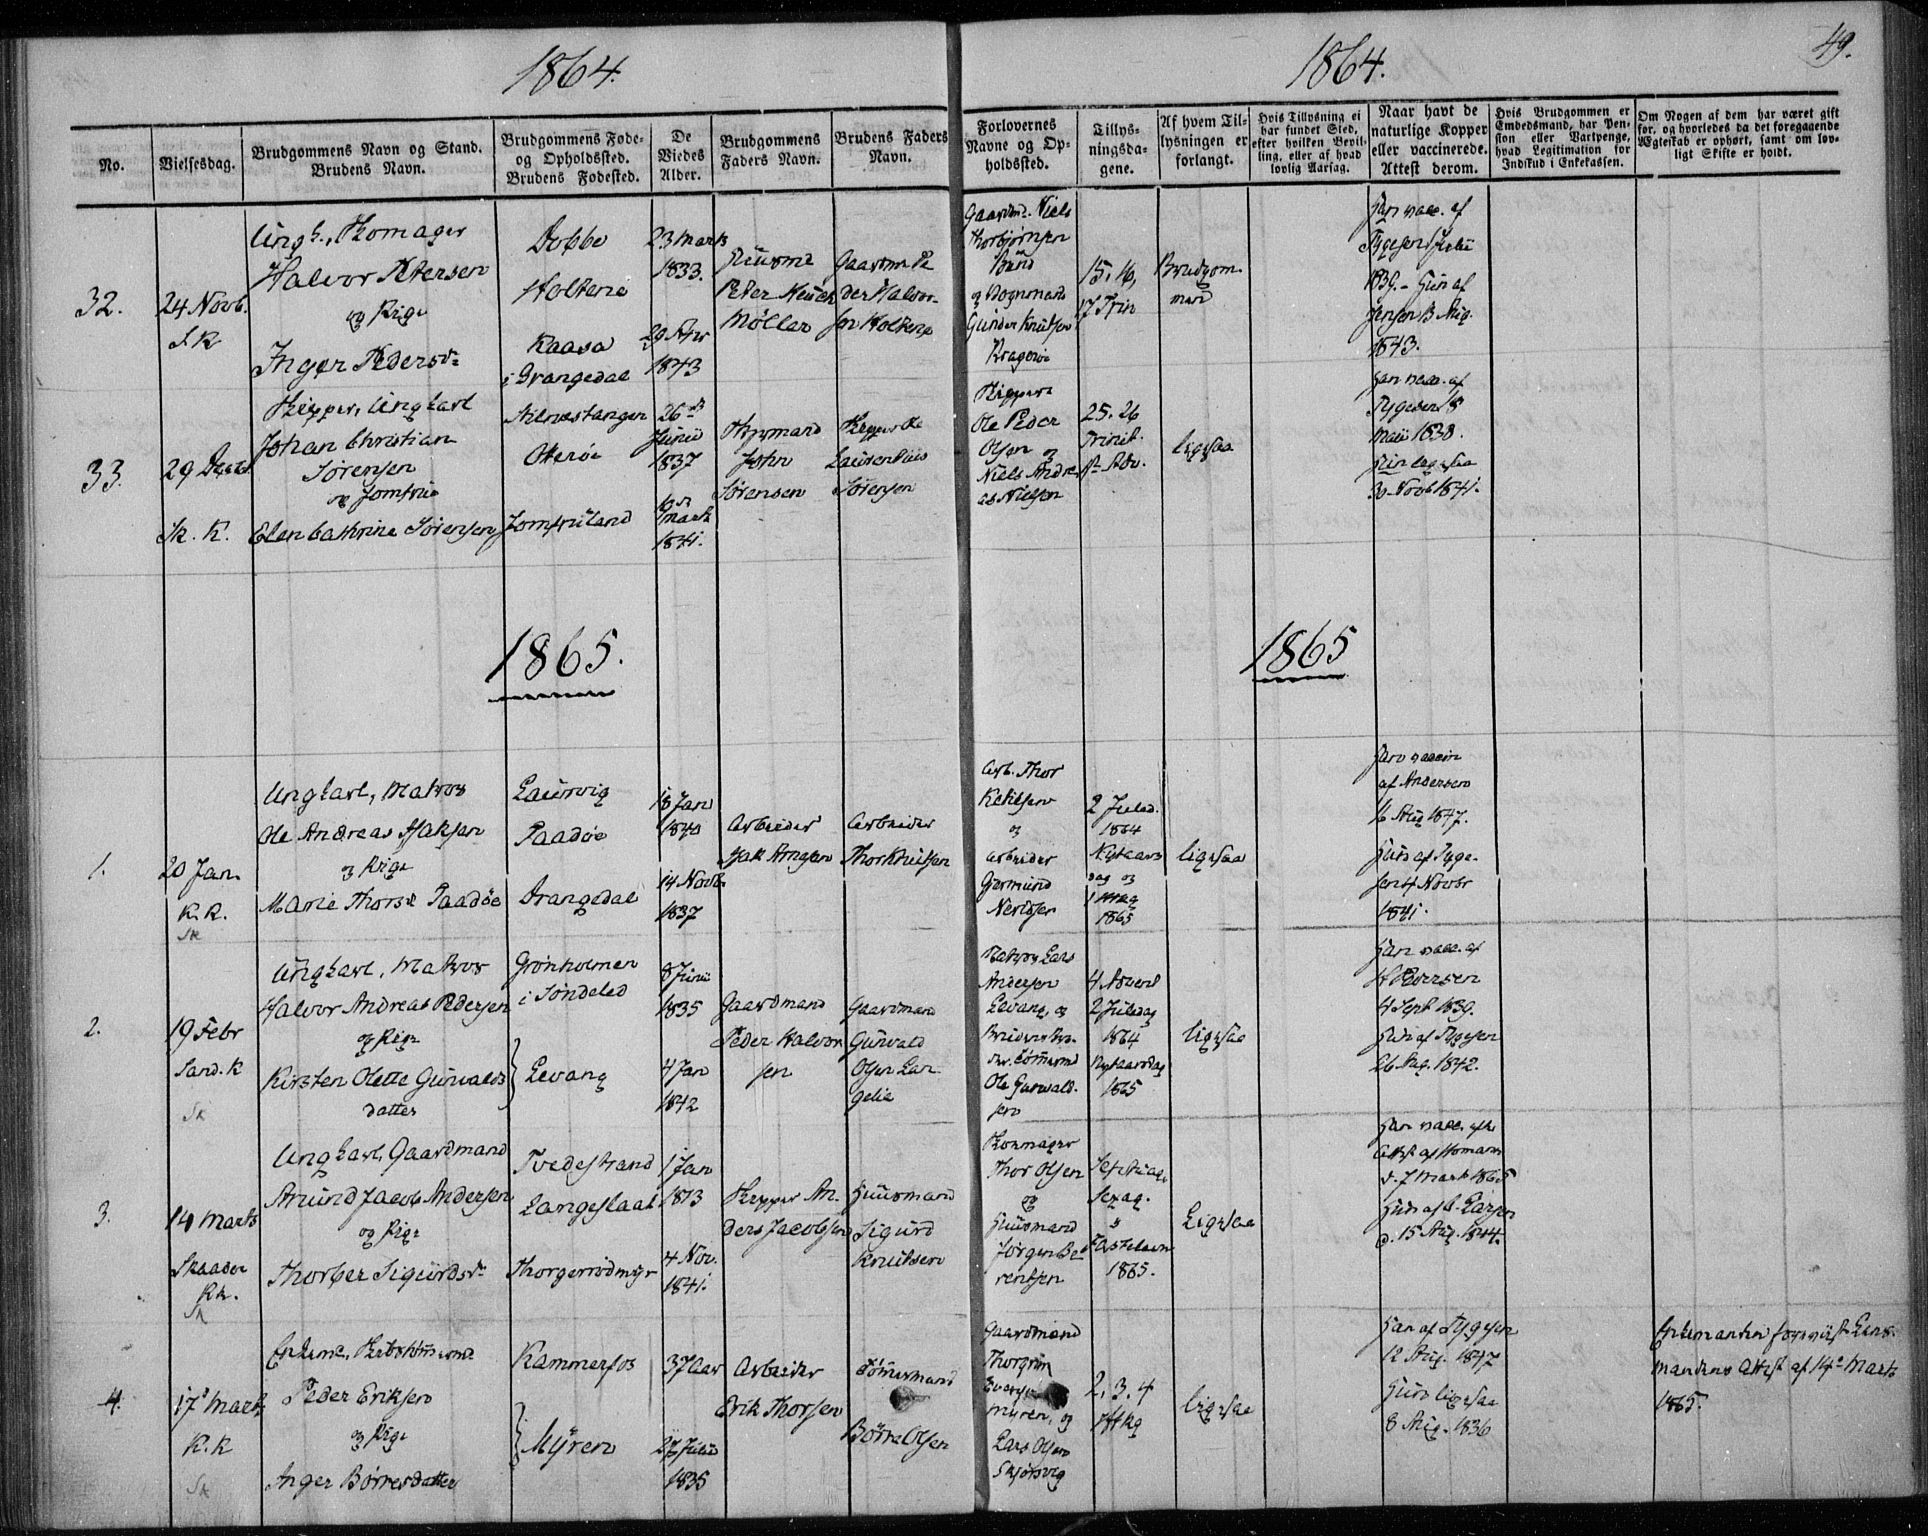 1864.
1864.
49.
No.
Vielsesdag.
Brudgommens Navn og Stand.
Brudens Navn.
Brudgommens Føde-
og Opholdssted.
Brudens Fødested.
De
Viedes
Alder.
Brudgommens
Faders Navn.
Brudens Faders
Navn.
Forlovernes
Navne og Op-
holdssted.
Tillys-
ningsda-
gene.
Af hvem Til-
lysningen er
forlangt.
Hvis Tillysning ei
har fundet Sted,
efter hvilken Bevil-
ling, eller af hvad
lovlig Aarsag.
Naar havt de
naturlige Kopper
eller vaccinerede.
Attest derom.
Hvis Brudgommen er
Embedsmand, har Pen-
sion eller Vartpenge,
hvad Legitimation for
Indskud i Enkekassen.
Om Nogen af dem har været gift
før, og hvorledes da det foregaaende
Ægteskab er ophørt, samt om lov-
ligt Skifte er holdt.
32.
24 Novb.
S. K
Ungk., Skomager
Halvor Petersen
og Pige
Inger Pedersd
Dobbe
Holtene
Kaasa
i Drangedal
23 Marts
1833.
29 Apr
1843
Huusmd
Peder
Möller
Gaardm Pe
der Halvor-
sen Holtene
Gaardm. Niels
Thorbjørnsen
Bund
og Bogmand
Gunder Knutsen
Kragerøe
15. 16,
17 Trin
Brudgom-
men
Han vacc. af
Tygesen Julii
1839. - Hun af
Jensen 13 Aug.
1843.
33.
29 Decb
Sk. K.
Skipper, Ungkarl
Johan Christian
Sörensen
og Jomfrue
Elen Cathrine Sörensen
Oterøe
Jomfruland
26
Junii
1837
Marts
1841.
Skipmand
John
Sörensen
Skipper
Laurentius
Sörensen
Skippere
Ole Peder
Olsen og
Niels Andre
as Nielsen
25. 26
Trinit.
1 Adv.
ligesaa
Han vacc. af
Tygesen 8
Maii 1838.
Hun ligesaa
30 Novb 1841.
1865.
1865
1.
20 Jan.
K. K.
Sk
Ungkarl, Matros
Ole Andreas Isaksen
og Pige
Marie Thorsd Taadøe
Laurvig
Taadøe
Drangedal
13 Jan
1840
14 Novb.
1837
Arbeider
Isak Arnesen
Arbeider
Thor Knutsen
Arb. Thor
Ketilsen
og
Arbeider
Gjermund
2 Juled.
1864
Nytaars
dag og
1865
ligesaa
Han vaccin
af Andersen
16 Aug 1847.
Hun af Tyge-
sen 4 Novbr
1841.
2.
19 Febr
Sand. K
Sk
Ungkarl, Matros
Halvor Andreas Pedersen
og Pige
Kirsten Olette Gunvalds
datter
Grønholmen
i Søndeled
Levang
8 Junii
1835
4 Jan
1842
Gaardmand
Peder Halvor
sen
Gaardmand
Gunvald
Olsen Lan-
gelie
Matros Lars
Andersen
Levang, og
Brudens Bro-
der. Tømmermd
Ole Gunvald-
sen
4 Advent
2 Juledag
1864
Nytaarsdag
1865
ligesaa
Han vacc. af
H Pedersen
4 Sept 1839.
Hun af Tygesen
26 Aug. 1842.
3.
14 Marts
Skaadøe
Kk.
Sk
Ungkarl, Gaardmand
Anund Jacob Andersen
og Pige
Thorber Sigurdsd
Tvedestrand
Langeslaat
Thorgerrødmyr
1 Jan
1843
4 Nov.
1841.
Skipper An-
ders Jacobsen
Huusmand
Sigurd
Knutsen
Skomager
Thor Olsen
og
Huusmand
Jørgen Be-
rentsen
Septuag.
Sexag.
"
Fastelavn
1865.
Ligesaa
Han vacc. efter
Attest af Homann
d. 7 Marts 1865
Hun af L. Larsen
d. 15 Aug. 1844.
4.
17 Marts
K. K
Sk
Enkem., Skibstømmermd
Peder Eriksen
og Pige
Anger Børresdatter
Kammerfos
Myren
37 Aar
27 Julii
1835
Arbeider
Erik Thorsen
Tømmermand
Børre Olsen
Gaardmand
Thorgrim
Myren, og
Lars Olsen
Skjørsveg
2, 3, 4
ligesaa
Han af Tygesen
12 Aug. 1847
Hun ligesaa
8 Aug. 1836
Enkemanden foreviist Lens-
mandens Attest af 14 Marts
1865.